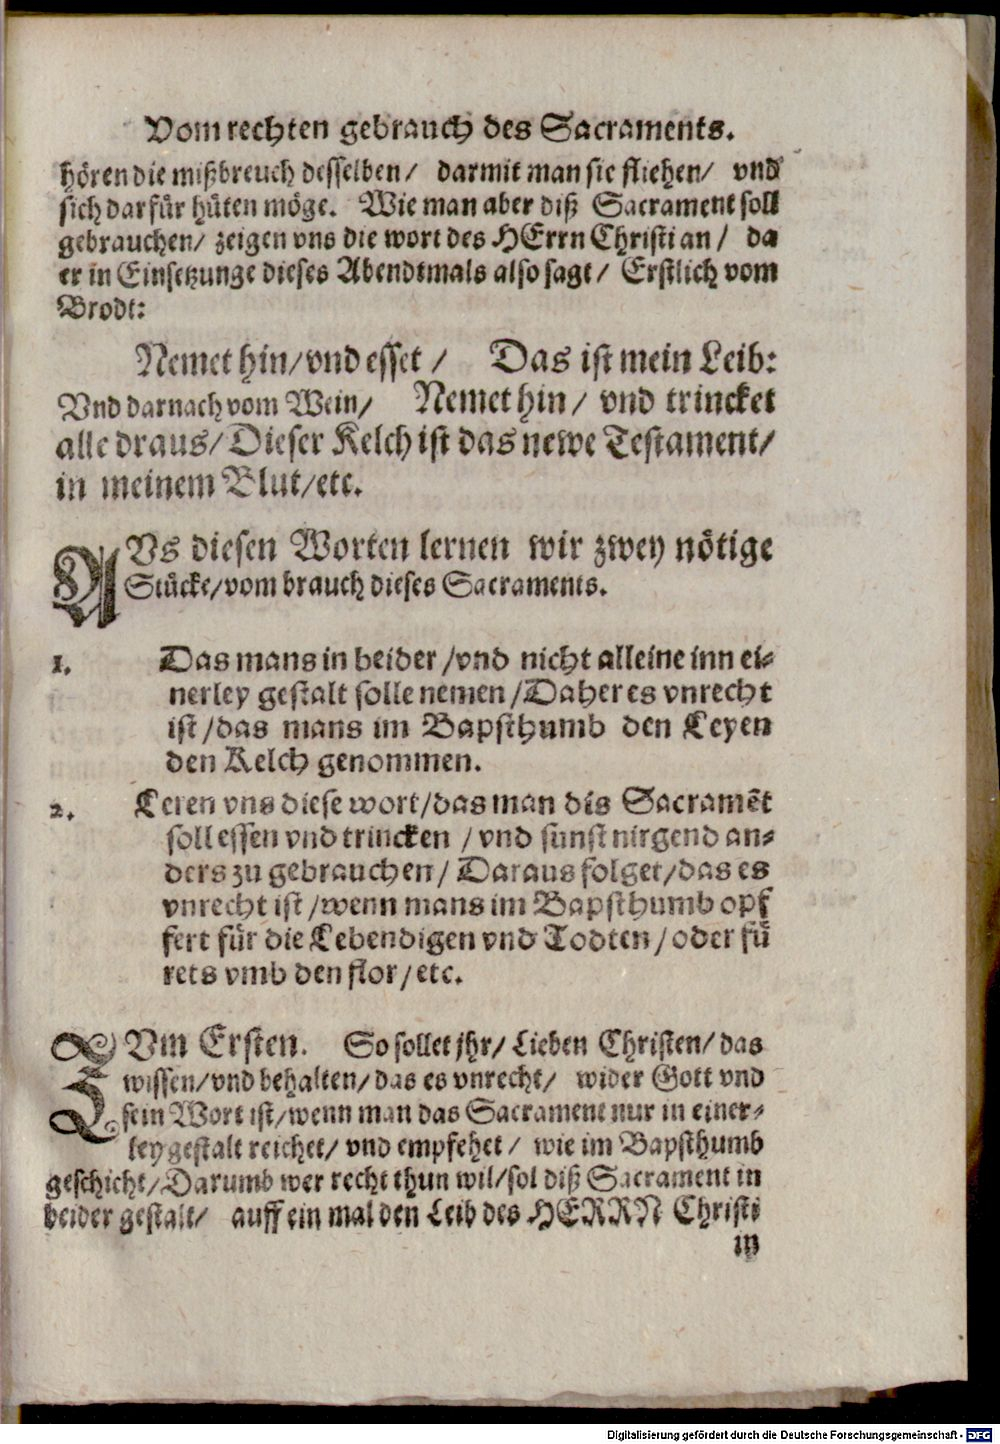 Vom rechten gebrauch des Sacraments.
hören die mißbreuch desselben/ darmit man sie fliehen/ vnd
sich darfür hüten möge. Wie man aber diß Sacrament soll
gebrauchen/ zeigen vns die wort des HErrn Christi an/ da
er in Einsetzunge dieses Abendtmals also sagt/ Erstlich vom
Brodt:
Nemet hin/ vnd esset/ Das ist mein Leib:
Vnd darnach vom Wein/ Nemet hin/ vnd trincket
alle draus/ Dieser Kelch ist das newe Testament/
in meinem Blut/ etc.
AVs diesen Worten lernen wir zwey nötige
Stücke/ vom brauch dieses Sacraments.
1. Das mans in beider/ vnd nicht alleine inn ei-
nerley gestalt solle nemen/ Daher es vnrecht
ist/ das mans im Bapsthumb den Leyen
den Kelch genommen.
2. Leren vns diese wort/ das man dis Sacramēt
soll essen vnd trincken/ vnd sunst nirgend an-
ders zu gebrauchen/ Daraus folget/ das es
vnrecht ist/ wenn mans im Bapsthumb opf
fert für die Lebendigen vnd Todten/ oder fü
rets vmb den flor/ etc.
ZVm Ersten. So sollet jhr/ Lieben Christen/ das
wissen/ vnd behalten/ das es vnrecht/ wider Gott vnd
sein Wort ist/ wenn man das Sacrament nur in einer-
ley gestalt reichet/ vnd empfehet/ wie im Bapsthumb
geschicht/ Darumb wer recht thun wil/ sol diß Sacrament in
beider gestalt/ auff ein mal den Leib des HERRN Christi
in
Digitalisierung gefördert durch die Deutsche Forschungsgemeinschaft - DFG